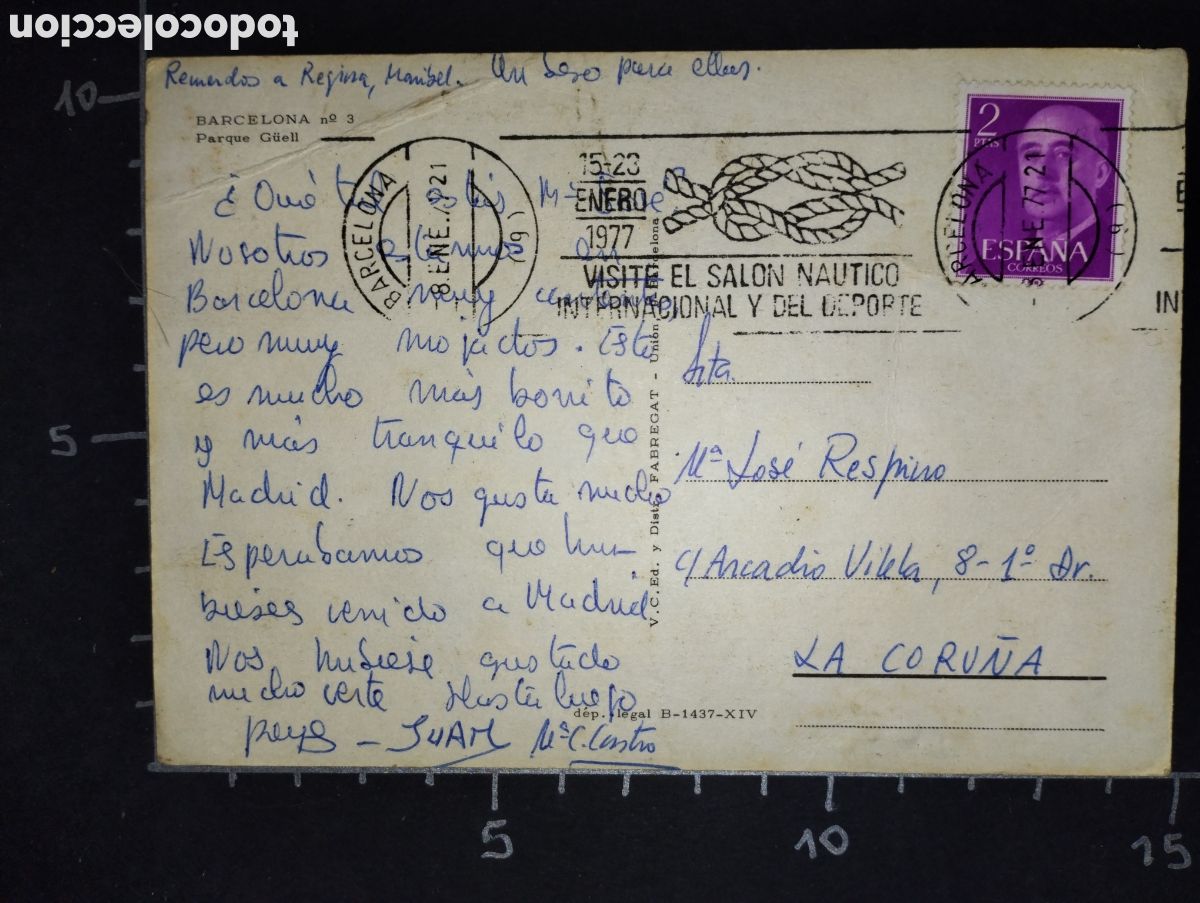 todocoleccion
Recuerdos a Regina, Maribel. Un beso para ellas.
BARCELONA nº 3
Parque Güell
¿Qué tal estás Mª José?
Nosotros estamos en
Barcelona muy contentos,
pero muy mojaditos. Esto
es mucho más bonito
y más tranquilo que
Madrid. Nos gusta mucho
Esperabamos que hu-
bieses venido a Madrid.
Nos hubiese gustado
mucho verte Hasta luego
JUAN Mª C. Castro
BARCELONA
8 ENE. 77 21
(9)
15-23
ENERO
1977
VISITE EL SALON NAUTICO
INTERNACIONAL Y DEL DEPORTE
2
PTAS
ESPAÑA
CORREOS
BARCELONA
8 ENE. 77 21
(9)
IN
V.C. Ed. y Distr. FABREGAT - Unión Barcelona
Srta.
Mª José Respino
c/ Arcadio Vilela, 8-1º Dr.
LA CORUÑA
dép. legal B-1437-XIV
10
5
5
10
15